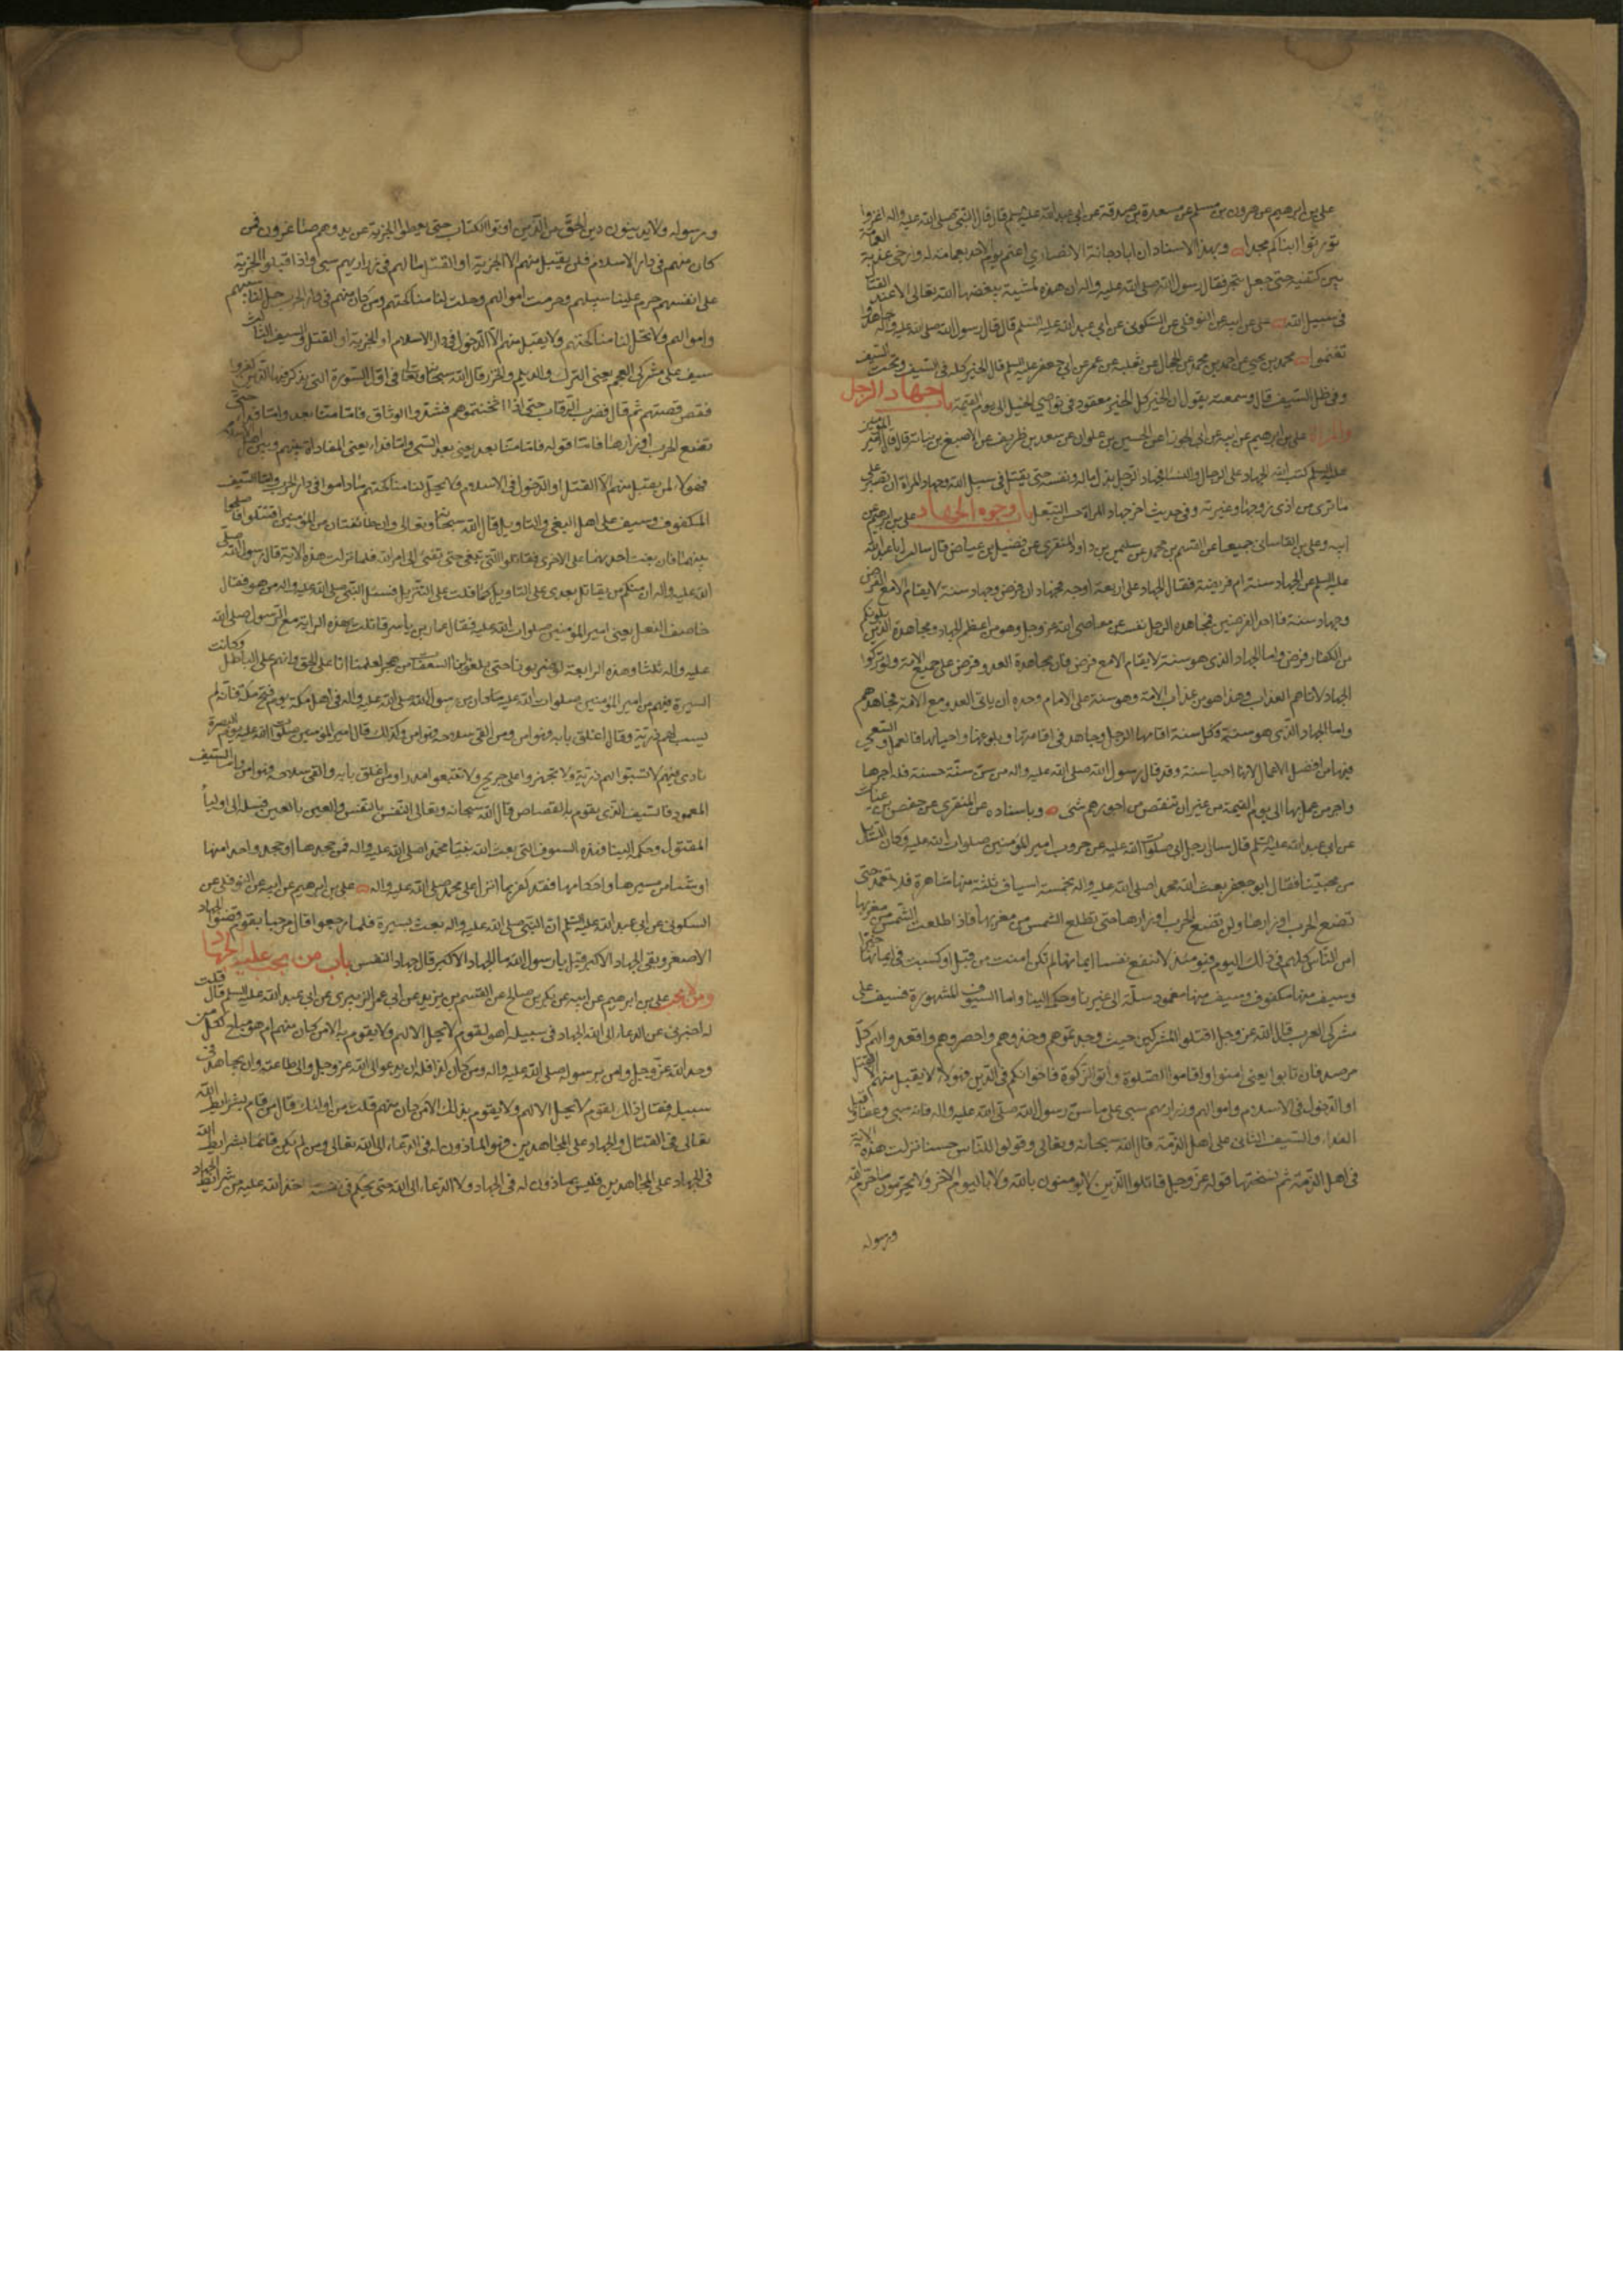 علي بن ابرهيم عن هرون بن مسلم عن مسعدة بن صدقة عن ابي عبد الله عليه السلم قال قال النبي صلى الله عليه واله اغزوا
تورثوا ابناكم مجدا وبهذا الاسناد ان ابا دجانة الانصاري اعتم يوم الاحد بعمامة له وارخى عذبة العمامة
بين كتفيه حتى جعل يتبختر فقال رسول الله صلى الله عليه واله ان هذه لمشية يبغضها الله تعالى الا عند القتال
في سبيل الله علي عن ابيه عن النوفلي عن السكوني عن ابي عبد الله عليه السلم قال قال رسول الله صلى الله عليه واله جاهدوا
تغنموا محمد بن يحيى عن احمد بن محمد عن الحجال عن ثعلبة عن معمر عن ابي جعفر عليه السلم قال الخير كله في السيف وتحت السيف
وفي ظل السيف قال وسمعته يقول ان الخير كل الخير معقود في نواصي الخيل الى يوم القيمة باب جهاد الرجل
والمراة علي بن ابرهيم عن ابيه عن ابي الجوزا عن الحسين بن علوان عن سعد بن ظريف عن الاصبغ بن نباتة قال قال امير المؤمنين
عليه السلم كتب الله الجهاد على الرجال والنساء فجهاد الرجل بذل ماله ونفسه حتى يقتل في سبيل الله وجهاد المراة ان تصبر على
ما ترى من اذى زوجها وغيرته وفي حديث اخر جهاد المراة حسن التبعل باب وجوه الجهاد علي بن ابرهيم عن
ابيه وعلي بن القاساني جميعا عن القسم بن محمد عن سليمن بن داود المنقري عن فضيل بن عياض قال سالت ابا عبد الله
عليه السلم عن الجهاد سنة ام فريضة فقال الجهاد على اربعة اوجه فجهادان فرض وجهاد سنة لا يقام الا مع الفرض
وجهاد سنة فاما احد الفرضين فمجاهدة الرجل نفسه عن معاصي الله عز وجل وهو من اعظم الجهاد ومجاهدة الذين يلونكم
من الكفار فرض واما الجهاد الذي هو سنة لا يقام الا مع فرض فان مجاهدة العدو فرض على جميع الامة ولو تركوا
الجهاد لاتاهم العذاب وهذا هو من عذاب الامة وهو سنة على الامام وحده ان ياتي العدو مع الامة فيجاهدهم
واما الجهاد الذي هو سنة فكل سنة اقامها الرجل وجاهد في اقامتها وبلوغها واحيائها فالعمل والسعي
فيها من افضل الاعمال لانها احيا سنة وقد قال رسول الله صلى الله عليه واله من سن سنة حسنة فله اجرها
واجر من عمل بها الى يوم القيمة من غير ان ينقص من اجورهم شئ وباسناده عن المنقري عن حفص بن غياث
عن ابي عبد الله عليه السلم قال سال رجل ابي صلوات الله عليه عن حروب امير المؤمنين صلوات الله عليه وكان السائل
من محبينا فقال ابو جعفر بعث الله محمدا صلى الله عليه واله بخمسة اسياف ثلثة منها شاهرة فلا تغمد حتى
تضع الحرب اوزارها ولن تضع الحرب اوزارها حتى تطلع الشمس من مغربها فاذا طلعت الشمس من مغربها
امن الناس كلهم في ذلك اليوم فيومئذ لا تنفع نفسا ايمانها لم تكن امنت من قبل او كسبت في ايمانها خيرا
وسيف منها مكفوف وسيف منها مغمود سله الى غيرنا وحكمه الينا واما السيوف المشهورة فسيف على
مشركي العرب قال الله عز وجل اقتلوا المشركين حيث وجدتموهم وخذوهم واحصروهم واقعدوا لهم كل
مرصد فان تابوا يعني امنوا واقاموا الصلوة واتوا الزكوة فاخوانكم في الدين فهؤلاء لا يقبل منهم الا القتل
او الدخول في الاسلام واموالهم وذراريهم سبي على ما سن رسول الله صلى الله عليه واله فانه سبى وعفا وقبل
الفداء والسيف الثاني على اهل الذمة قال الله سبحانه وتعالى وقولوا للناس حسنا نزلت هذه الاية
في اهل الذمة ثم نسختها قوله عز وجل قاتلوا الذين لا يومنون بالله ولا باليوم الاخر ولا يحرمون ما حرم الله
ورسوله
ورسوله ولا يدينون دين الحق من الذين اوتوا الكتاب حتى يعطوا الجزية عن يد وهم صاغرون فمن
كان منهم في دار الاسلام فلن يقبل منهم الا الجزية او القتل ومالهم فئ وذراريهم سبي واذا قبلوا الجزية
على انفسهم حرم علينا سبيهم وحرمت اموالهم وحلت لنا مناكحتهم ومن كان منهم في دار الحرب حل لنا سبيهم
واموالهم ولا تحل لنا مناكحتهم ولا يقبل منهم الا الدخول في دار الاسلام او الجزية او القتل والسيف الثالث
سيف على مشركي العجم يعني الترك والديلم والخزر قال الله سبحانه وتعالى في اول السورة التي يذكر فيها الذين كفروا
فقص قصتهم ثم قال فضرب الرقاب حتى اذا اثخنتموهم فشدوا الوثاق فاما منا بعد واما فداء حتى
تضع الحرب اوزارها فاما قوله فاما منا بعد يعني بعد السبي واما فداء يعني المفاداة بينهم وبين اهل الاسلام
فهؤلاء لن يقبل منهم الا القتل او الدخول في الاسلام ولا يحل لنا مناكحتهم ما داموا في دار الحرب واما السيف
المكفوف فسيف على اهل البغي والتاويل قال الله سبحانه وتعالى وان طائفتان من المؤمنين اقتتلوا فاصلحوا
بينهما فان بغت احديهما على الاخرى فقاتلوا التي تبغي حتى تفئ الى امر الله فلما نزلت هذه الاية قال رسول الله صلى
الله عليه واله ان منكم من يقاتل بعدي على التاويل كما قاتلت على التنزيل فسئل النبي صلى الله عليه واله من هو فقال
خاصف النعل يعني امير المؤمنين صلوات الله عليه فقال عمار بن ياسر قاتلت بهذه الراية مع الرسول صلى الله
عليه واله ثلثا وهذه الرابعة لو ضربونا حتى يبلغوا بنا السعفات من هجر لعلمنا انا على الحق وانهم على الباطل وكانت
السيرة فيهم من امير المؤمنين صلوات الله عليه ما كان من رسول الله صلى الله عليه واله في اهل مكة يوم فتح مكة فانه لم
يسب لهم ذرية وقال من اغلق بابه فهو امن ومن القى سلاحه فهو امن وكذلك قال امير المؤمنين صلوات الله عليه يوم البصرة
نادى فيهم لا تسبوا لهم ذرية ولا تجهزوا على جريح ولا تتبعوا مدبرا ومن اغلق بابه والقى سلاحه فهو امن واما السيف
المغمود فالسيف الذي يقوم به القصاص قال الله سبحانه وتعالى النفس بالنفس والعين بالعين فسله الى اولياء
المقتول وحكمه الينا فهذه السيوف التي بعث الله نبينا محمدا صلى الله عليه واله فمن جحدها او جحد واحدا منها
او شيئا من سيرها واحكامها فقد كفر بما انزل على محمد صلى الله عليه واله علي بن ابرهيم عن ابيه عن النوفلي عن
السكوني عن ابي عبد الله عليه السلم ان النبي صلى الله عليه واله بعث بسرية فلما رجعوا قال مرحبا بقوم قضوا الجهاد
الاصغر وبقي الجهاد الاكبر قيل يا رسول الله ما الجهاد الاكبر قال جهاد النفس باب من يجب عليه الجهاد
ومن لا يجب علي بن ابرهيم عن ابيه عن بكر بن صالح عن القسم بن بريد عن ابي عمر الزبيري عن ابي عبد الله عليه السلم قال قلت
له اخبرني عن الدعاء الى الله والجهاد في سبيله اهو لقوم لا يحل الا لهم ولا يقوم به الا من كان منهم ام هو مباح لكل من
وحد الله عز وجل وامن برسوله صلى الله عليه واله ومن كان كذا فله ان يدعو الى الله عز وجل والى طاعته وان يجاهد في
سبيله فقال ذلك لقوم لا يحل الا لهم ولا يقوم بذلك الا من كان منهم قلت من اولئك قال من قام بشرايط الله
تعالى في القتال والجهاد على المجاهدين فهو الماذون له في الدعاء الى الله تعالى ومن لم يكن قائما بشرايط الله
في الجهاد على المجاهدين فليس بماذون له في الجهاد ولا الدعاء الى الله حتى يحكم في نفسه ما اخذ الله عليه من شرايط الجهاد